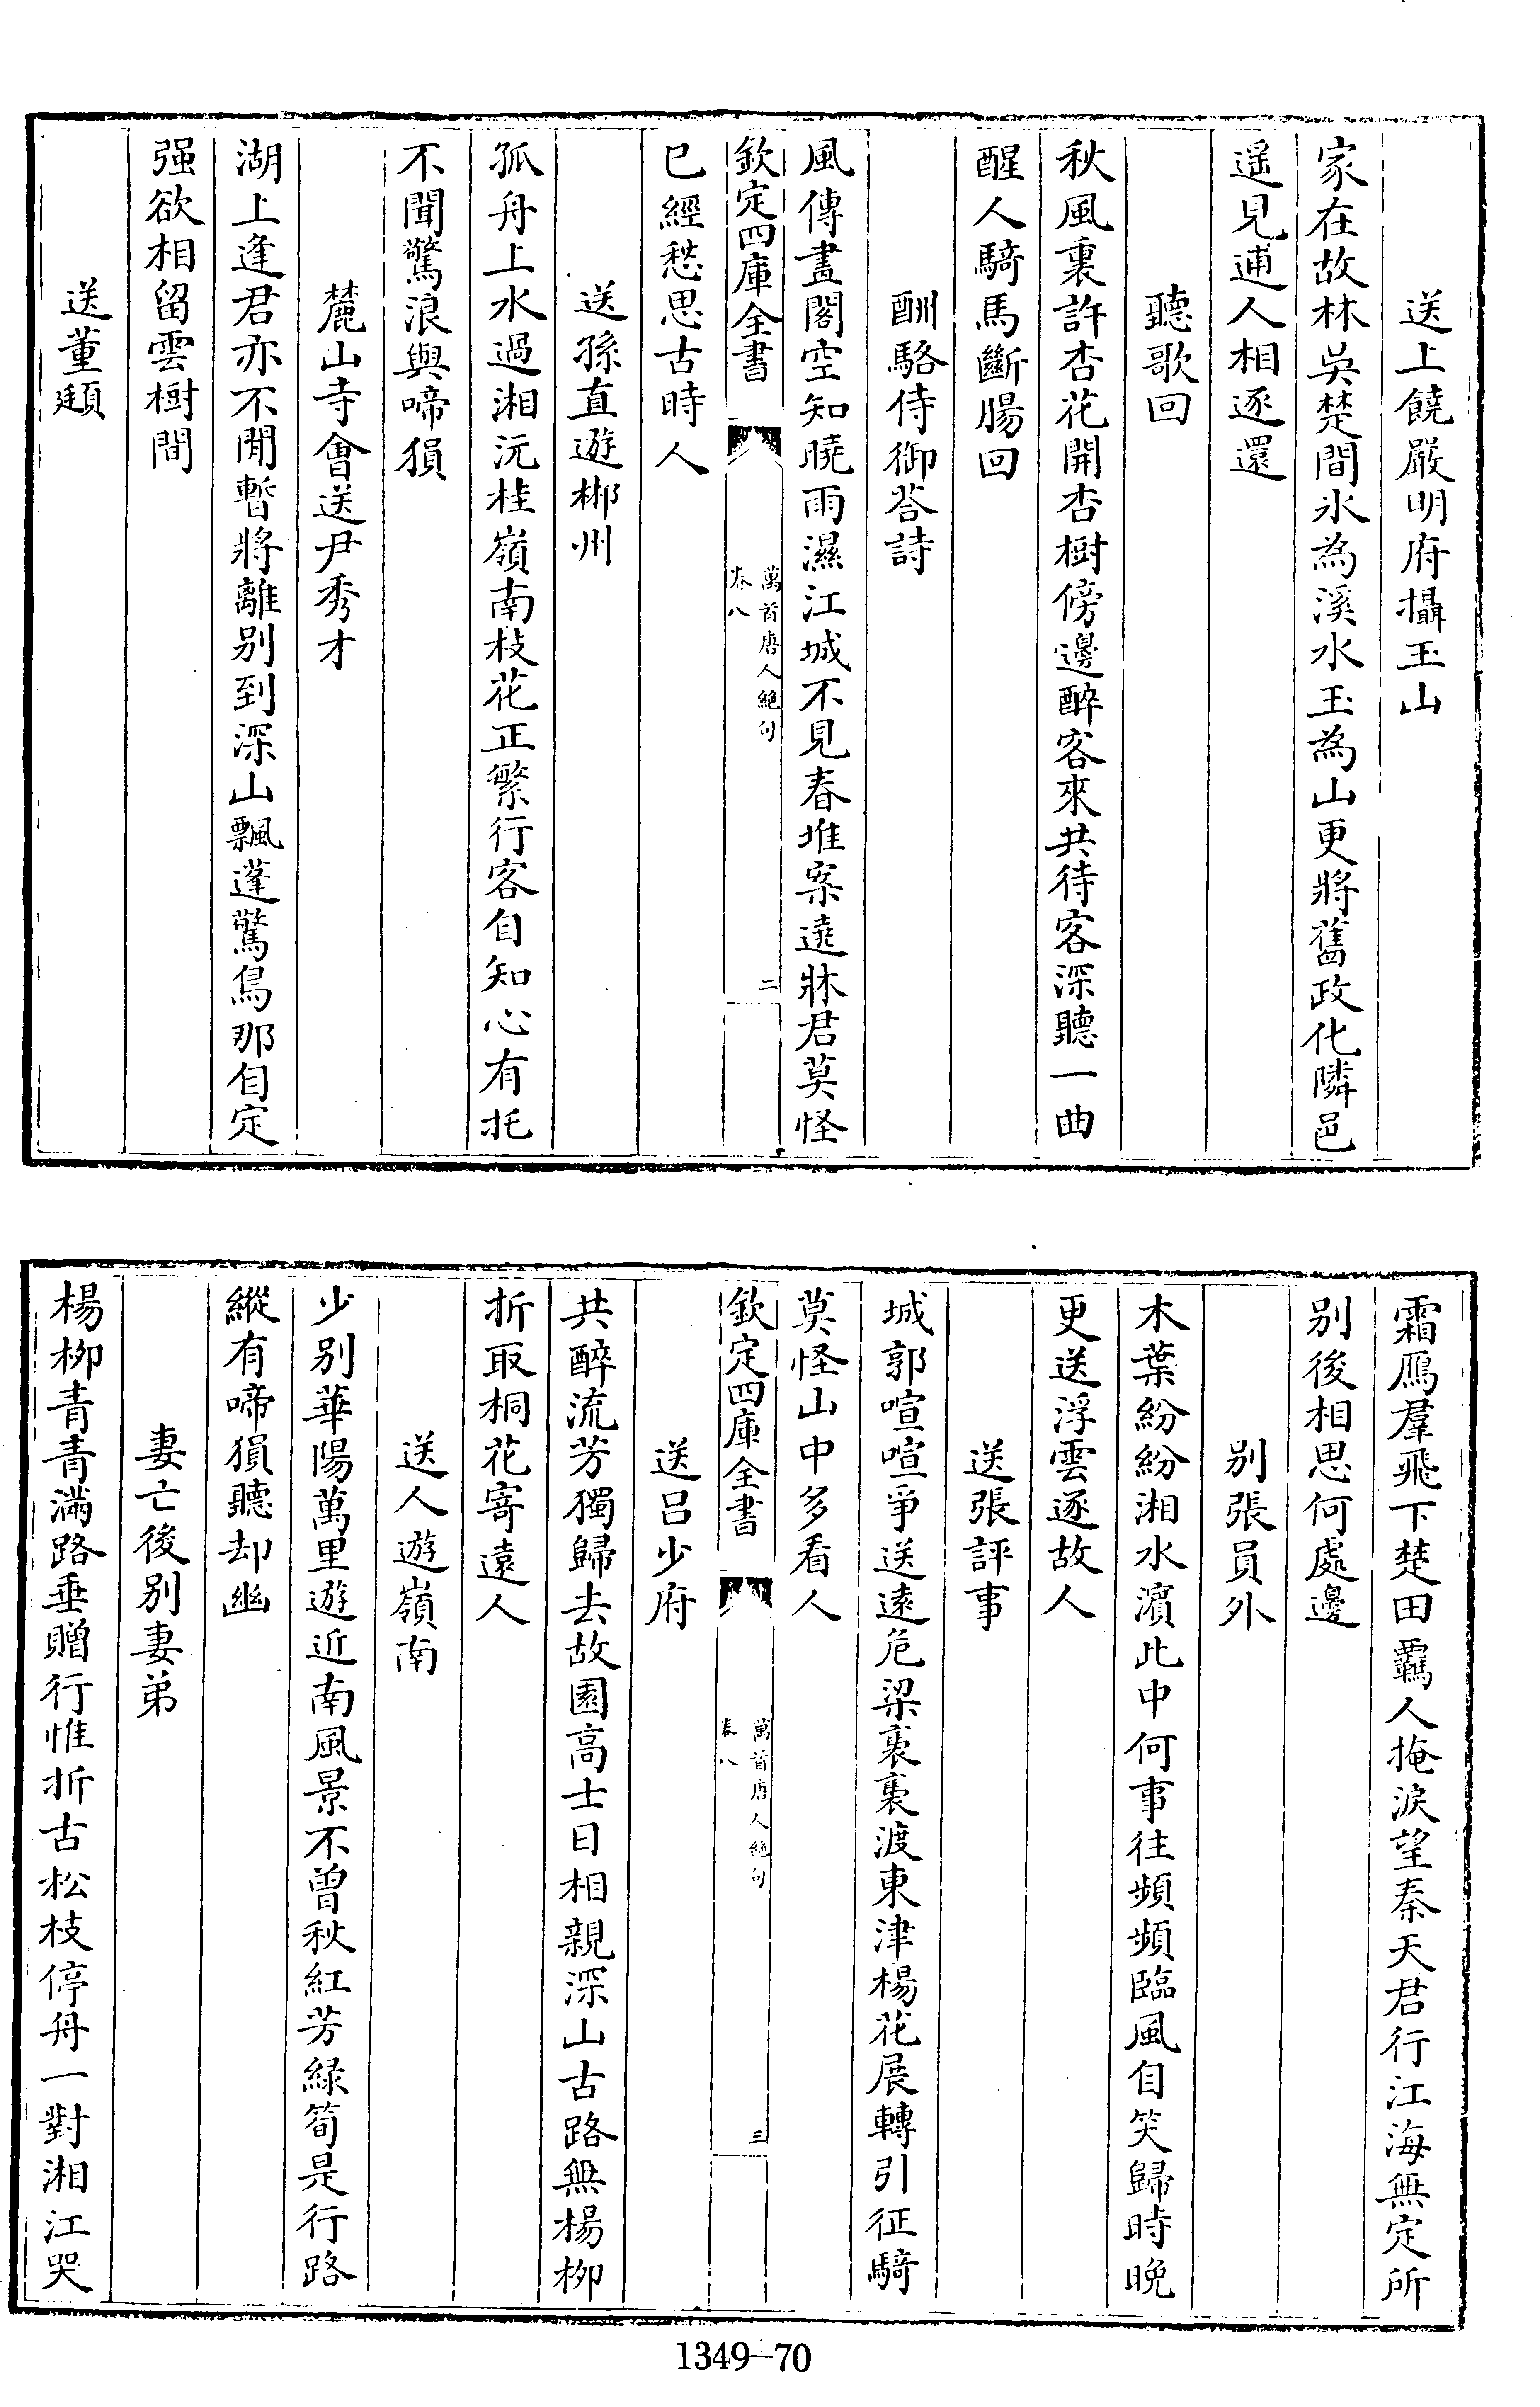 送上饒嚴明府攝玉山
家在故林吳楚間氷為溪水玉為山更將舊政化隣邑
遥見逋人相逐還
聽歌回
秋風裏許杏花開杏樹傍邊醉客來共待客深聽一曲
醒人騎馬斷腸回
酬駱侍御荅詩
風傳畫閣空知曉雨濕江城不見春堆案遶牀君莫怪
欽定四庫全書
萬首唐人絶句
卷八
二
已經愁思古時人
送孫直遊郴州
孤舟上水過湘沅桂嶺南枝花正繁行客自知心有托
不聞驚浪與啼猿
麓山寺會送尹秀才
湖上逢君亦不閒暫將離别到深山飄蓬驚鳥那自定
强欲相留雲樹間
送董頲
霜鴈羣飛下楚田覊人掩淚望秦天君行江海無定所
别後相思何處邊
别張員外
木葉紛紛湘水濵此中何事往頻頻臨風自笑歸時晚
更送浮雲逐故人
送張評事
城郭喧喧爭送逺危梁裊裊渡東津楊花展轉引征騎
莫怪山中多看人
欽定四庫全書
萬首唐人絶句
卷八
三
送吕少府
共醉流芳獨歸去故園高士日相親深山古路無楊柳
折取桐花寄遠人
送人遊嶺南
少别華陽萬里遊近南風景不曽秋紅芳緑筍是行路
縱有啼猿聽却幽
妻亡後别妻弟
楊柳青青滿路垂贈行惟折古松枝停舟一對湘江哭
1349-70